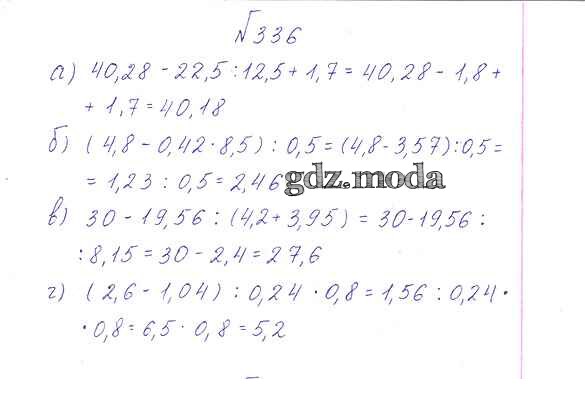 №336
а) 40,28 - 22,5 : 12,5 + 1,7 = 40,28 - 1,8 +
+ 1,7 = 40,18
б) (4,8 - 0,42 · 8,5) : 0,5 = (4,8 - 3,57) : 0,5 =
= 1,23 : 0,5 = 2,46 gdz.moda
в) 30 - 19,56 : (4,2 + 3,95) = 30 - 19,56 :
: 8,15 = 30 - 2,4 = 27,6
г) (2,6 - 1,04) : 0,24 · 0,8 = 1,56 : 0,24 ·
· 0,8 = 6,5 · 0,8 = 5,2